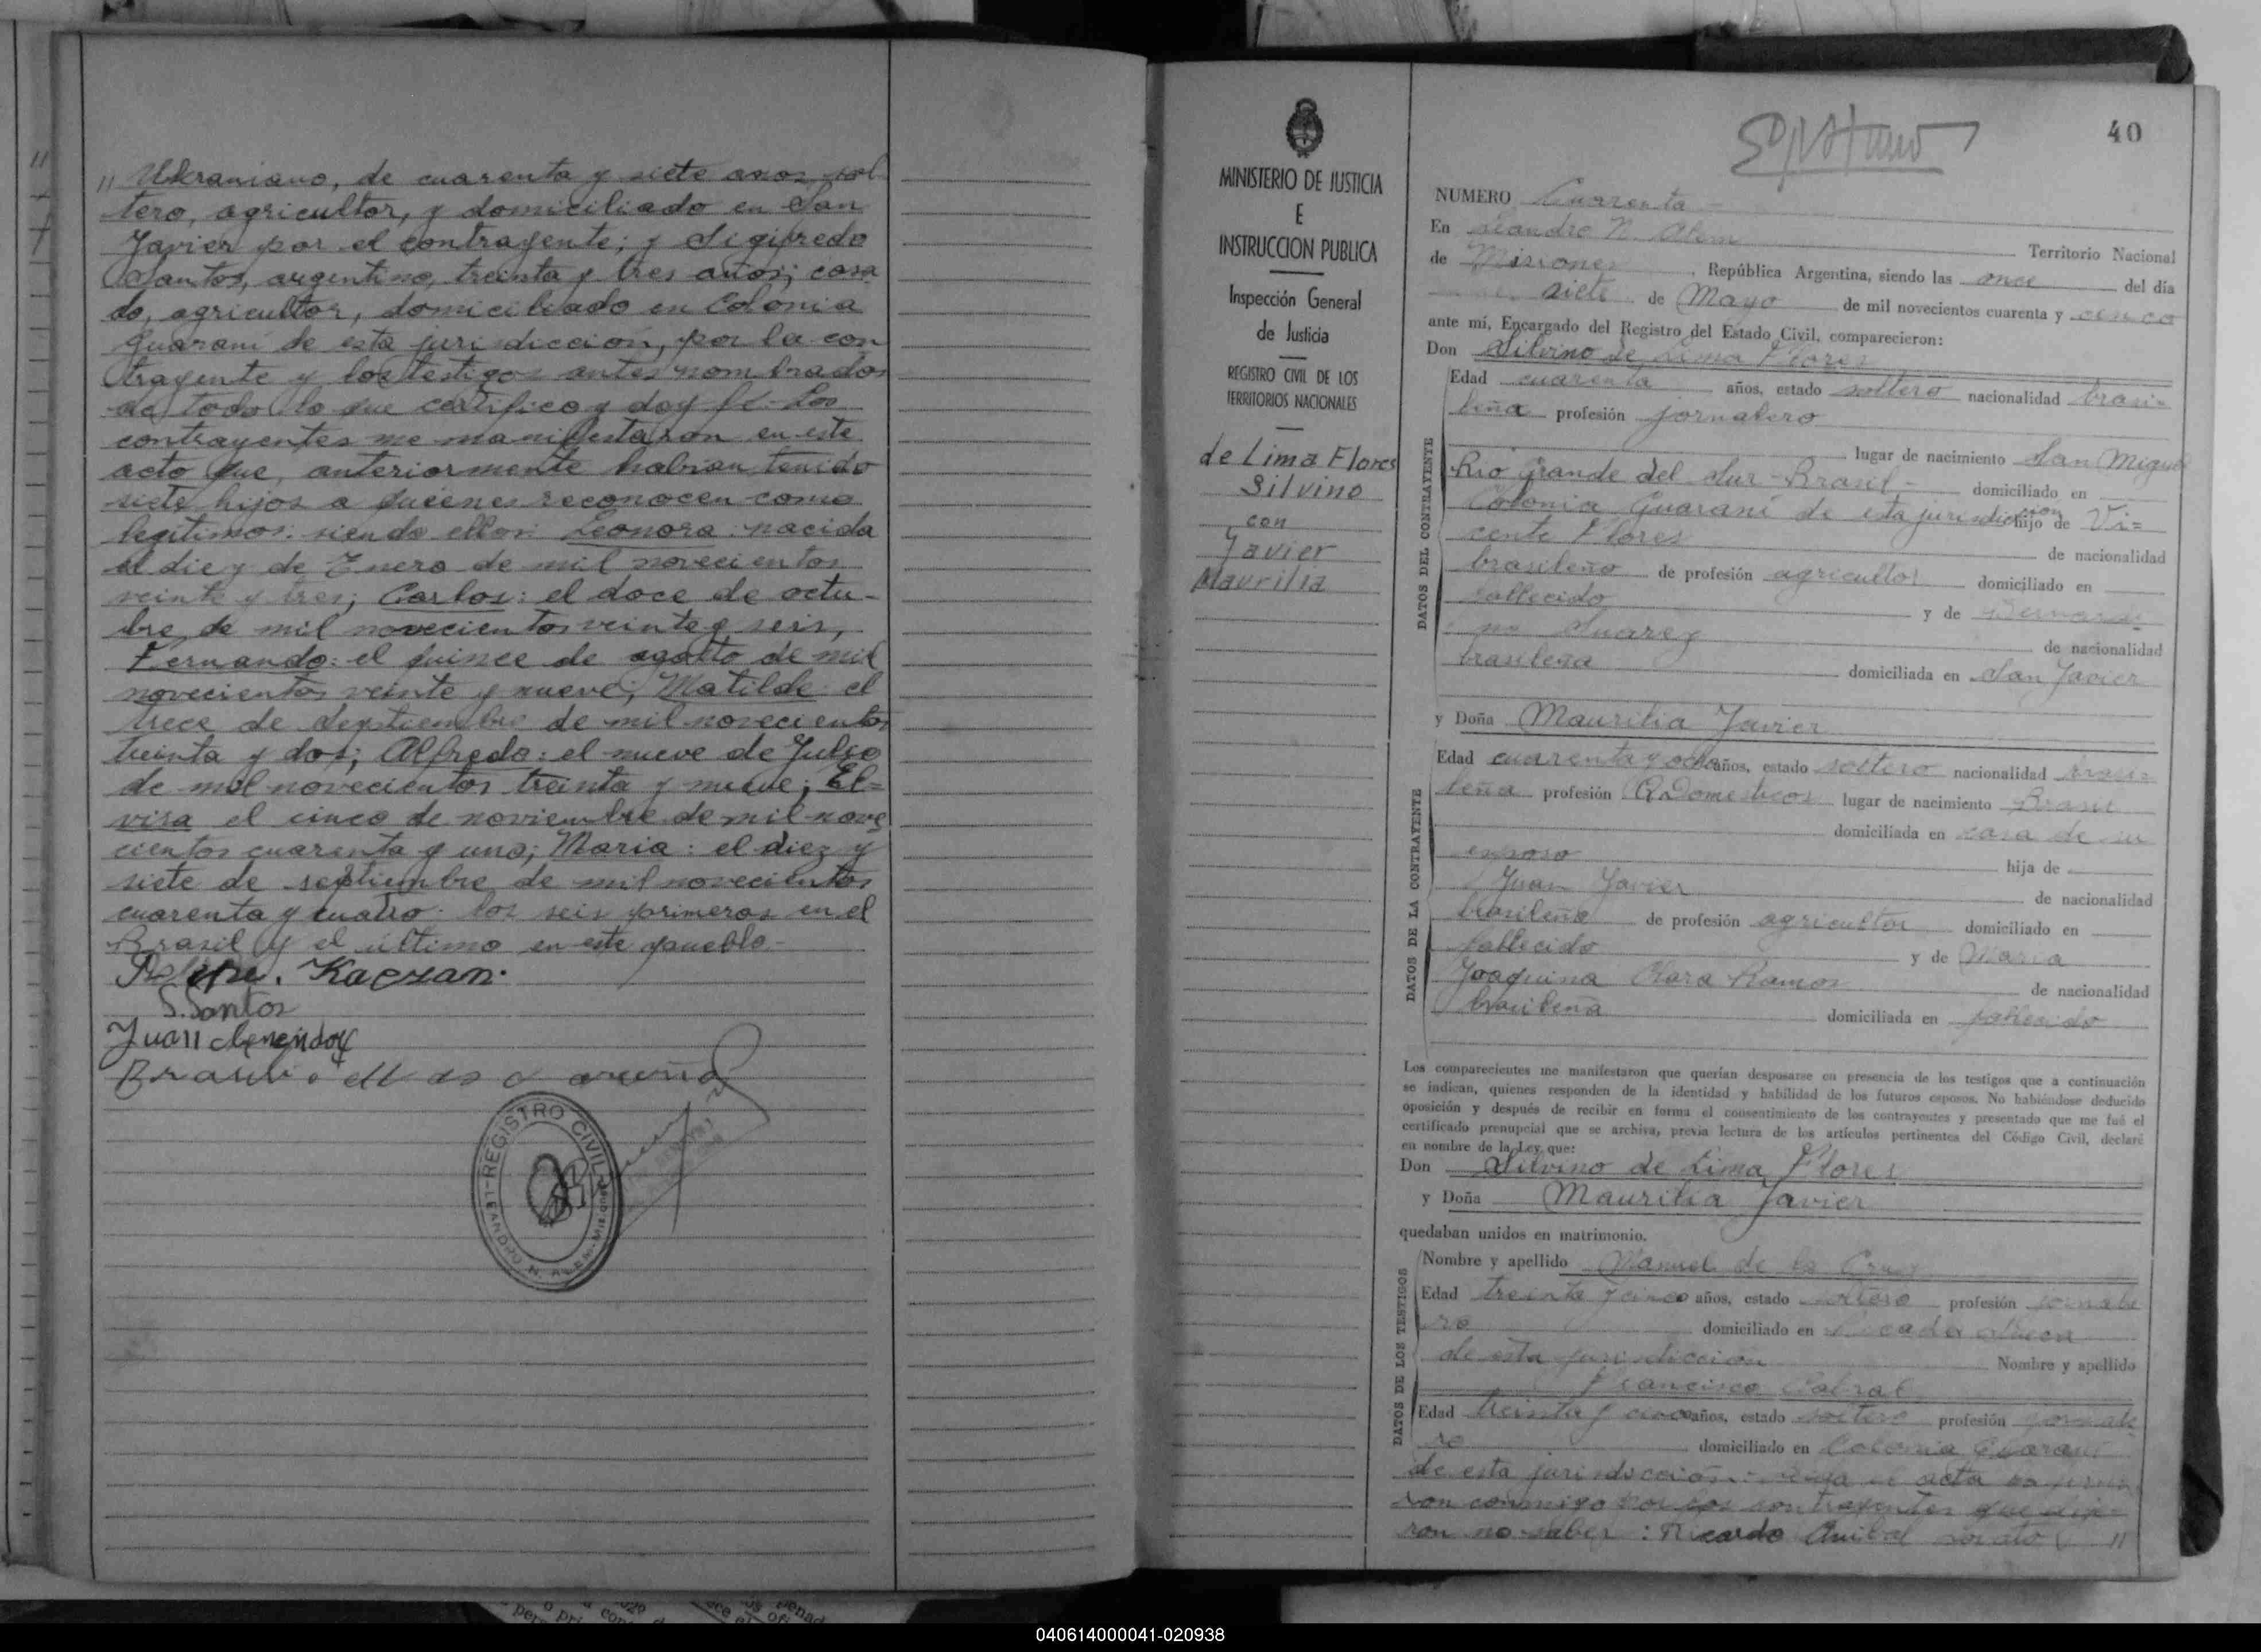 " Ukraniano, de cuarenta y siete años, sol
tero, agricultor, y domiciliado en San
Javier por el contrayente; y Sigifredo
Santos, argentino, treinta y tres años; casa
do, agricultor, domiciliado en Colonia
Guaraní de esta jurisdicción, por la con
trayente y los testigos antes nombrados
de todo lo que certifico y doy fé.- Los
contrayentes me manifestaron en este
acto que, anteriormente habian tenido
siete hijos a quienes reconocen como
legítimos: siendo ellos: Leonora: nacida
el diez de Enero de mil novecientos
veinte y tres; Carlos: el doce de octu-
bre de mil novecientos veinte y seis,
Fernando: el quince de agosto de mil
novecientos veinte y nueve; Matilde el
trece de septiembre de mil novecientos
treinta y dos; Alfredo: el nueve de Julio
de mil novecientos treinta y nueve; El=
vira el cinco de noviembre de mil nove
cientos cuarenta y uno; Maria: el diez y
siete de septiembre de mil novecientos
cuarenta y cuatro. los seis primeros en el
Brasil y el último en este pueblo.-
Kaczan.
S. Santos
Juan
REGISTRO CIVIL
LEANDRO N. ALEM-MISIONES
MINISTERIO DE JUSTICIA
E
INSTRUCCION PUBLICA
Inspección General
de Justicia
REGISTRO CIVIL DE LOS
TERRITORIOS NACIONALES
de Lima Flores
Silvino
con
Javier
Maurilia
40
NUMERO Cuarenta
En Leandro N. Alem Territorio Nacional
de Misiones, República Argentina, siendo las once del día
siete de Mayo de mil novecientos cuarenta y cinco
ante mí, Encargado del Registro del Estado Civil, comparecieron:
Don Silvino de Lima Flores
DATOS DEL CONTRAYENTE
Edad cuarenta años, estado soltero nacionalidad brasi=
leña profesión jornalero
lugar de nacimiento San Miguel
Rio Grande del Sur - Brasil - domiciliado en
Colonia Guaraní de esta jurisdiccion hijo de Vi=
cente Flores de nacionalidad
brasileño de profesión agricultor domiciliado en
fallecido y de Bernardi=
na Suarez de nacionalidad
brasileña domiciliada en San Javier
y Doña Maurilia Javier
DATOS DE LA CONTRAYENTE
Edad cuarenta y ocho años, estado soltero nacionalidad brasi=
leña profesión Q. Domesticos lugar de nacimiento Brasil
domiciliada en casa de su
esposo hija de
Juan Javier de nacionalidad
brasileña de profesión agricultor domiciliado en
fallecido y de Maria
Joaquina Clara Ramos de nacionalidad
brasileña domiciliada en fallecido
Los comparecientes me manifestaron que querían desposarse en presencia de los testigos que a continuación
se indican, quienes responden de la identidad y habilidad de los futuros esposos. No habiéndose deducido
oposición y después de recibir en forma el consentimiento de los contrayentes y presentado que me fué el
certificado prenupcial que se archiva, previa lectura de los artículos pertinentes del Código Civil, declaré
en nombre de la Ley, que:
Don Silvino de Lima Flores
y Doña Maurilia Javier
quedaban unidos en matrimonio.
DATOS DE LOS TESTIGOS
Nombre y apellido Manuel de la Cruz
Edad treinta y cinco años, estado soltero profesión jornale
ro domiciliado en Picada
de esta jurisdiccion Nombre y apellido
Francisco Cabral
Edad treinta y cinco años, estado soltero profesión jornale
ro domiciliado en Colonia Guaraní
de esta jurisdicción.- acta
ron conmigo por los contrayentes que dije
ron no saber: Ricardo Anibal "
040614000041-020938